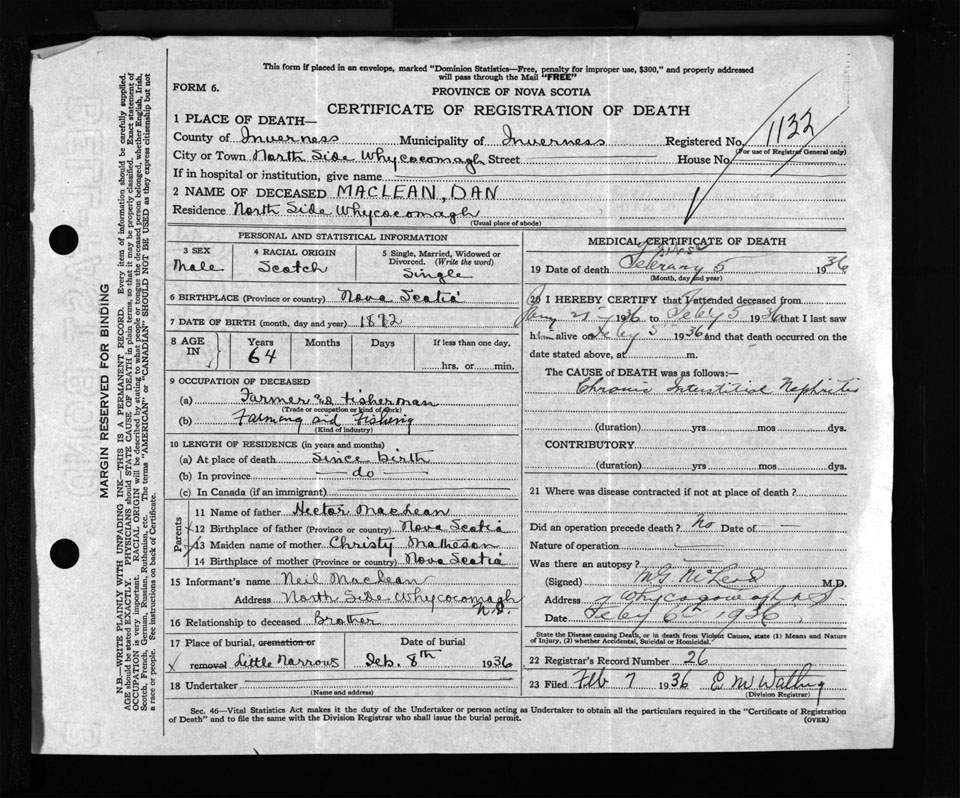 This form if placed in an envelope, marked "Dominion Statistics—Free, penalty for improper use, $300," and properly addressed
will pass through the Mail "FREE"
FORM 6.
PROVINCE OF NOVA SCOTIA
CERTIFICATE OF REGISTRATION OF DEATH
1 PLACE OF DEATH—
County of Inverness Municipality of Inverness Registered No. 1132
(For use of Registrar General only)
City or Town North Side Whycocomagh Street House No.
If in hospital or institution, give name
2 NAME OF DECEASED MACLEAN, DAN
Residence North Side Whycocomagh
(Usual place of abode)
PERSONAL AND STATISTICAL INFORMATION
3 SEX Male
4 RACIAL ORIGIN Scotch
5 Single, Married, Widowed or Divorced. (Write the word) Single
6 BIRTHPLACE (Province or country) Nova Scotia
7 DATE OF BIRTH (month, day and year) 1872
8 AGE IN Years Months Days If less than one day,
64 hrs. or min.
9 OCCUPATION OF DECEASED
(a) Farmer and Fisherman
(Trade or occupation or kind of work)
(b) Farming and Fishing
(Kind of industry)
10 LENGTH OF RESIDENCE (in years and months)
(a) At place of death Since birth
(b) In province — do —
(c) In Canada (if an immigrant)
Parents
11 Name of father Hector MacLean
12 Birthplace of father (Province or country) Nova Scotia
13 Maiden name of mother Christy Matheson
14 Birthplace of mother (Province or country) Nova Scotia
15 Informant's name Neil MacLean
Address North Side Whycocomagh N.S.
16 Relationship to deceased Brother
17 Place of burial, cremation or removal Little Narrows Date of burial Feb. 8th 1936
18 Undertaker
(Name and address)
MEDICAL CERTIFICATE OF DEATH
19 Date of death Febrary 5 1936
(Month, day and year)
20 I HEREBY CERTIFY that I attended deceased from
Jany 21 1936 to Feby 5 1936 that I last saw
him alive on Feby 5 1936 and that death occurred on the
date stated above, at m.
The CAUSE of DEATH was as follows:—
Chronic Interstitial Nephritis
(duration) yrs mos dys.
CONTRIBUTORY
(duration) yrs mos dys.
21 Where was disease contracted if not at place of death?
Did an operation precede death? No Date of —
Nature of operation
Was there an autopsy?
(Signed) McLeod M.D.
Address Whycocomagh N.S.
Date Feby 6th 1936
State the Disease causing Death, or in death from Violent Causes, state (1) Means and Nature
of Injury, (2) whether Accidental, Suicidal or Homicidal.
22 Registrar's Record Number 26
23 Filed Feb 7 1936 E M
(Division Registrar)
Sec. 46—Vital Statistics Act makes it the duty of the Undertaker or person acting as Undertaker to obtain all the particulars required in the "Certificate of Registration
of Death" and to file the same with the Division Registrar who shall issue the burial permit. (OVER)
MARGIN RESERVED FOR BINDING
N.B.—WRITE PLAINLY WITH UNFADING INK—THIS IS A PERMANENT RECORD. Every item of information should be carefully supplied.
AGE should be stated EXACTLY. PHYSICIANS should STATE CAUSE OF DEATH in plain terms, so that it may be properly classified. Exact statement of
OCCUPATION is very important. RACIAL ORIGIN will be described by stating to what people or tongue the deceased person belonged, whether English, Irish,
Scotch, French, German, Russian, Ruthenian, etc. The terms "AMERICAN" or "CANADIAN" SHOULD NOT BE USED as they express citizenship but not
a race or people. See instructions on back of Certificate.